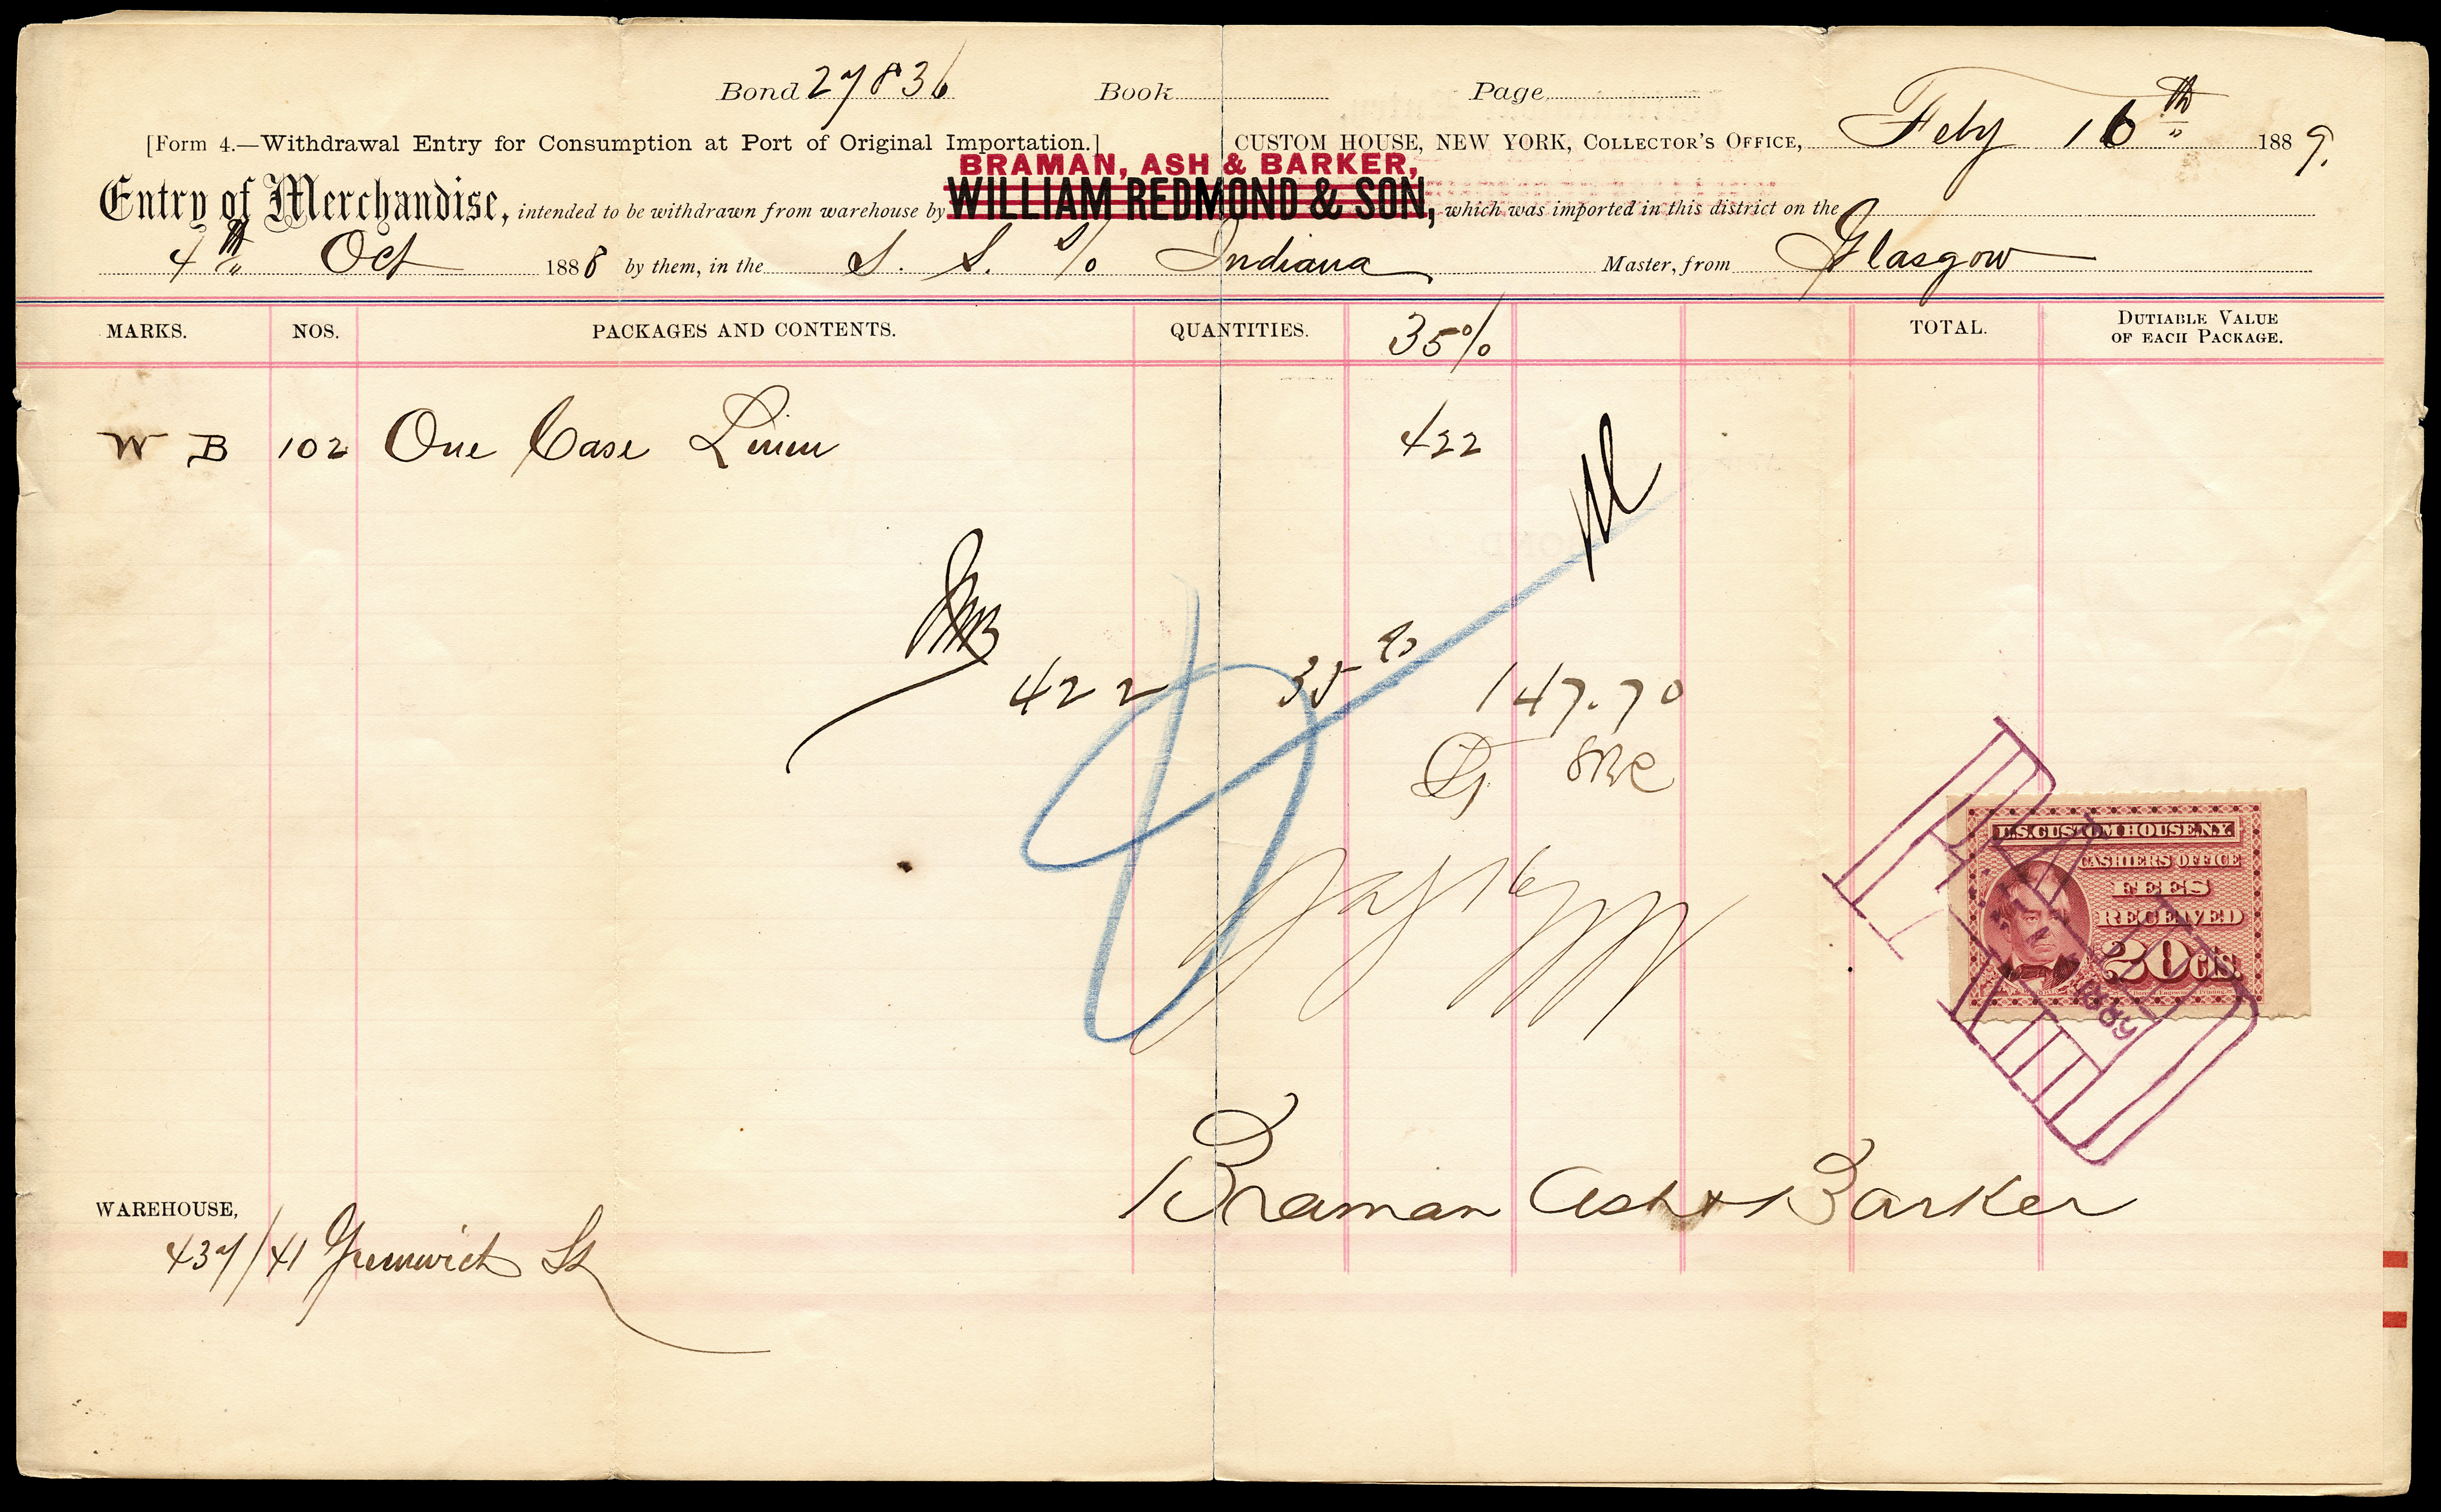 Bond 27836 Book Page
[Form 4.—Withdrawal Entry for Consumption at Port of Original Importation.] CUSTOM HOUSE, NEW YORK, COLLECTOR'S OFFICE, Feby 16th 1889.
BRAMAN, ASH & BARKER,
Entry of Merchandise, intended to be withdrawn from warehouse by WILLIAM REDMOND & SON, which was imported in this district on the
4th Oct 1888 by them, in the S. S. % Indiana Master, from Glasgow
MARKS. NOS. PACKAGES AND CONTENTS. QUANTITIES. 35% TOTAL. DUTIABLE VALUE
OF EACH PACKAGE.
W B 102 One Case Linen 422
422 35% 147.70
U.S. CUSTOM HOUSE N.Y.
CASHIERS OFFICE
FEES
RECEIVED
20 CTS.
Braman Ash & Barker
WAREHOUSE,
437/41 Greenwich St